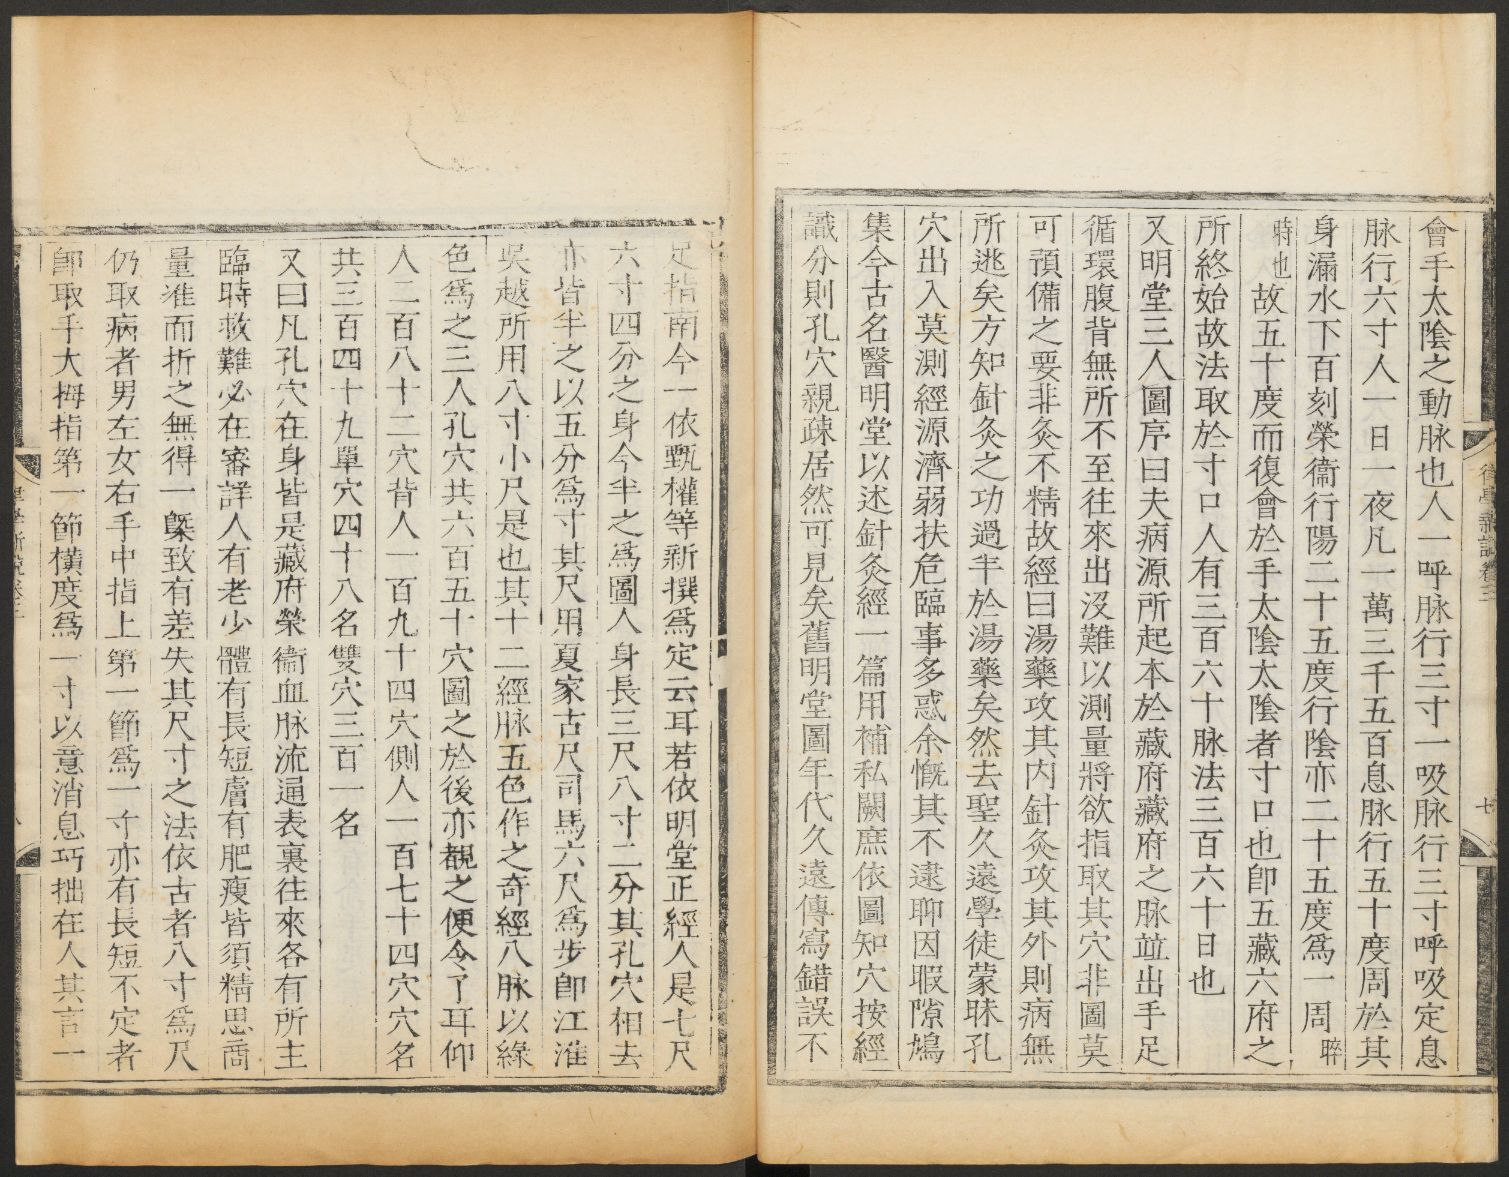 會手太陰之動脉也人一呼脉行三寸一吸脉行三寸呼吸定息
脉行六寸人一日一夜凡一萬三千五百息脉行五十度周於其
身漏水下百刻榮衞行陽二十五度行陰亦二十五度爲一周晬
時也故五十度而復會於手太陰太陰者寸口也卽五藏六府之
所終始故法取於寸口人有三百六十脉法三百六十日也
又明堂三人圖序曰夫病源所起本於藏府藏府之脉竝出手足
循環腹背無所不至往來出沒難以測量將欲指取其穴非圖莫
可預備之要非灸不精故經曰湯藥攻其內針灸攻其外則病無
所逃矣方知針灸之功過半於湯藥矣然去聖久遠學徒蒙昧孔
穴出入莫測經源濟弱扶危臨事多惑余慨其不逮聊因暇隙鳩
集今古名醫明堂以述針灸經一篇用補私闕庶依圖知穴按經
識分則孔穴親疎居然可見矣舊明堂圖年代久遠傳寫錯誤不
足指南今一依甄權等新撰爲定云耳若依明堂正經人是七尺
六寸四分之身今半之爲圖人身長三尺八寸二分其孔穴相去
亦皆半之以五分爲寸其尺用夏家古尺司馬六尺爲步卽江淮
吳越所用八寸小尺是也其十二經脉五色作之奇經八脉以綠
色爲之三人孔穴共六百五十穴圖之於後亦覩之便令了耳仰
人二百八十二穴背人一百九十四穴側人一百七十四穴穴名
共三百四十九單穴四十八名雙穴三百一名
又曰凡孔穴在身皆是藏府榮衞血脉流通表裏往來各有所主
臨時救難必在審詳人有老少體有長短膚有肥瘦皆須精思商
量准而折之無得一槩致有差失其尺寸之法依古者八寸爲尺
仍取病者男左女右手中指上第一節爲一寸亦有長短不定者
卽取手大拇指第一節橫度爲一寸以意消息巧拙在人其言一
七
八